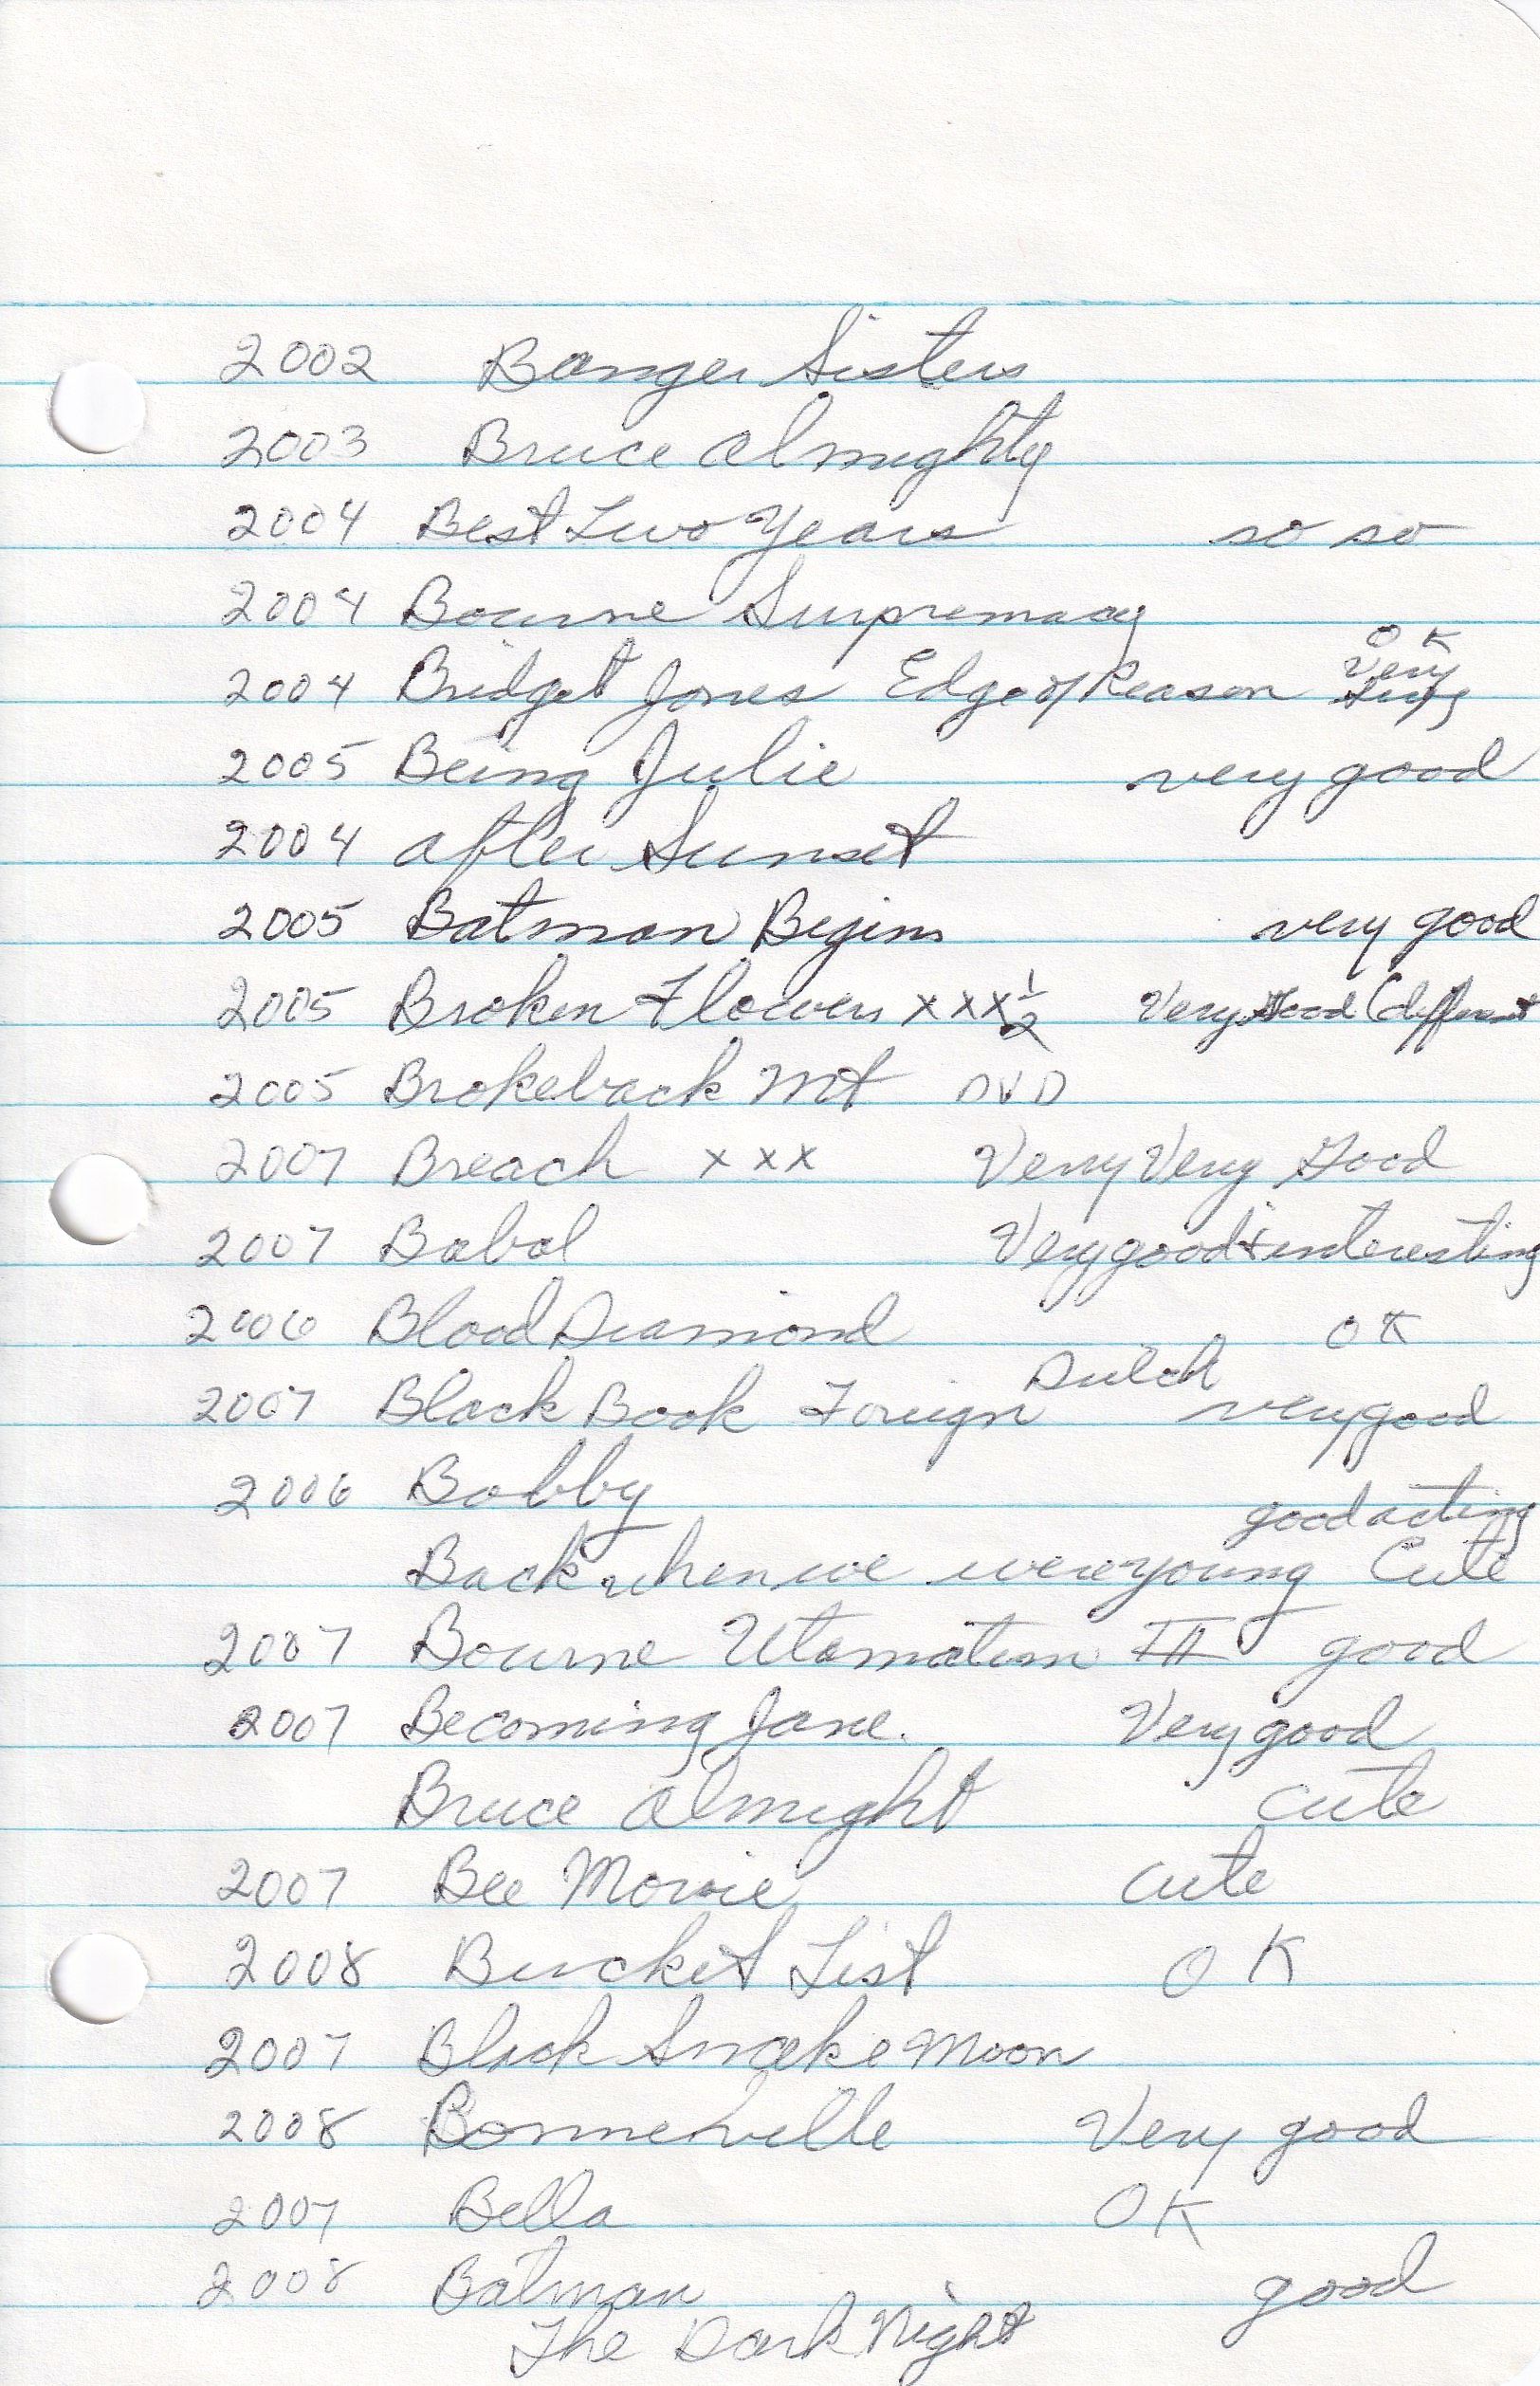 2002 Banger Sisters
2003 Bruce Almighty
2004 Best Two Years so so
2004 Bourne Surpremacy
2004 Bridget Jones Edge of Reason OK Very
2005 Being Julie very good
2004 After Sunset
2005 Batman Begins very good
2005 Broken Flowers xxx½ Very Good (different
2005 Brokeback Mt DVD
2007 Breach xxx Very Very Good
2007 Babal Very good + interesting
2006 Blood Diamond OK
2007 Black Book Foreign Dutch very good
2006 Bobby good acting
Back when we were young Cute
2007 Bourne Utamatim III good
2007 Becoming Jane. Very good
Bruce Almight cute
2007 Bee Movie cute
2008 Bucket List OK
2007 Black Snake Moon
2008 Bonneville Very good
2007 Bella OK
2008 Batman good
The Dark Night